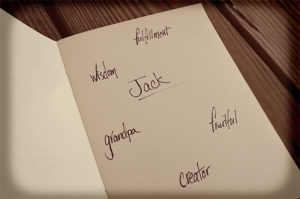 fulfillment
wisdom
Jack
grandpa
fruitful
Creator